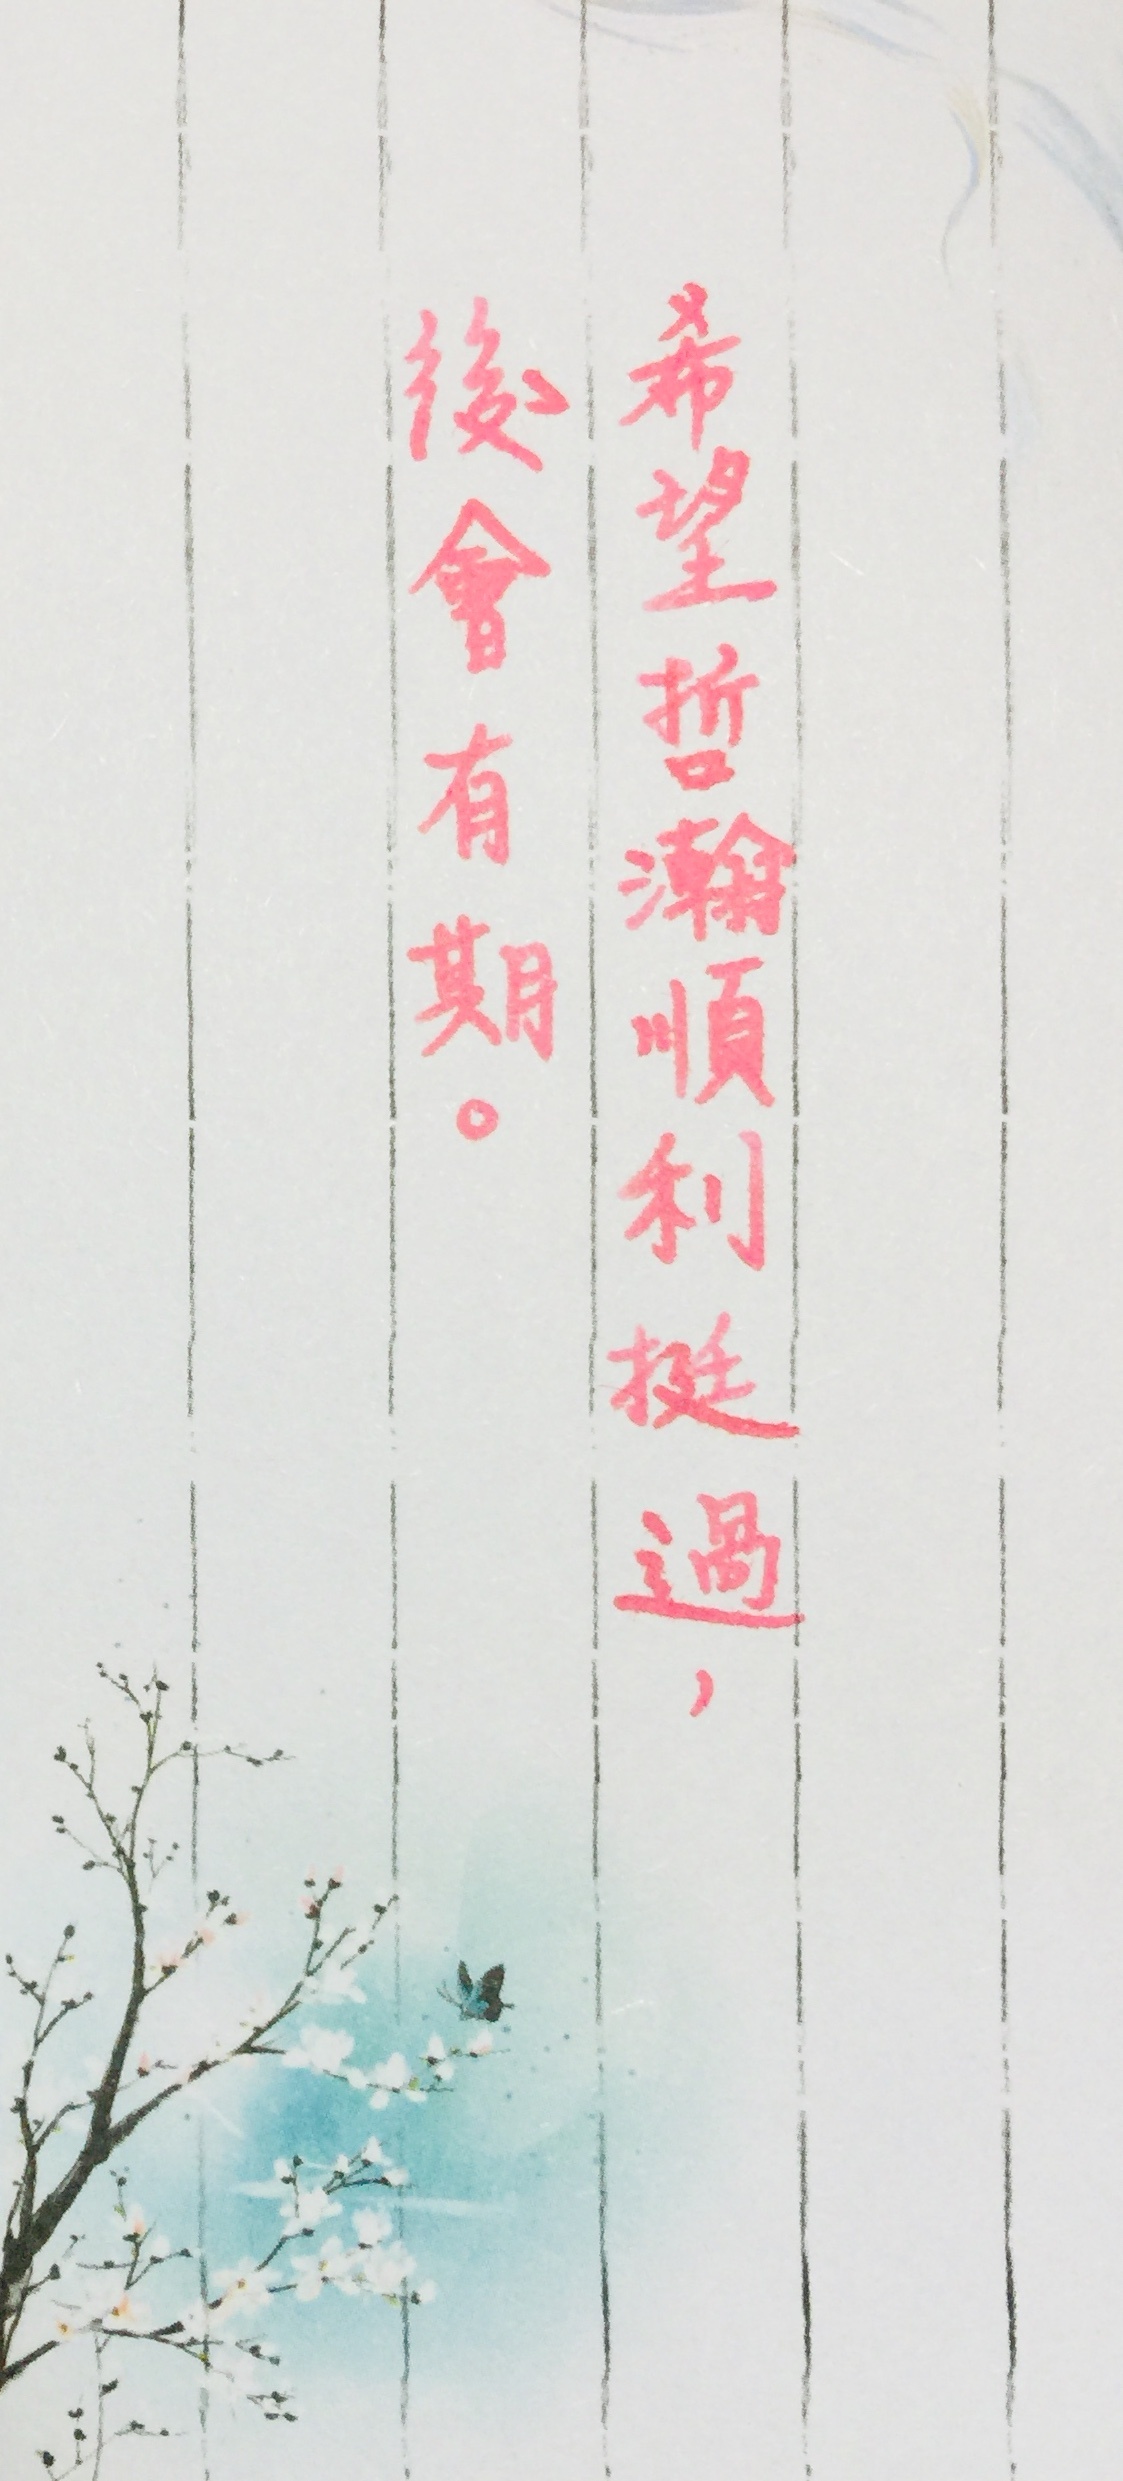 希望哲瀚順利挺過，
後會有期。